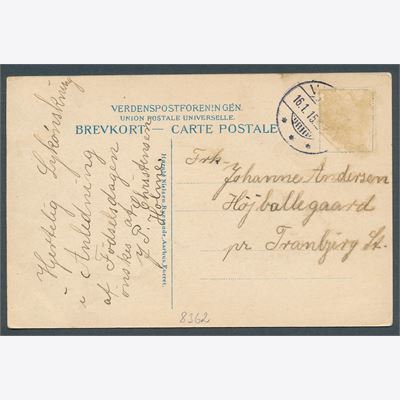 VERDENSPOSTFORENINGEN.
UNION POSTALE UNIVERSELLE.
BREVKORT— CARTE POSTALE
16.1.15
Hjertelig Lykønskning
i Anledning
af Fødselsdagen
ønskes af
J. P. Christensen
Holme
Frk.
Johanne Andersen
Højballegaard
pr Tranbjerg St.
8362